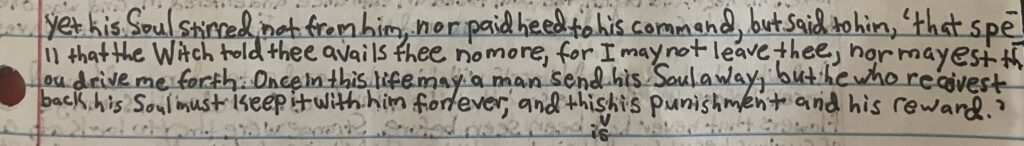 yet his Soul stirred not from him, nor paid heed to his command, but said to him, 'that spe
ll that the Witch told thee avails thee no more, for I may not leave thee, nor mayest th
ou drive me forth. Once in this life may a man send his Soul away, but he who receivest
back his Soul must keep it with him for ever, and this is his punishment and his reward.'